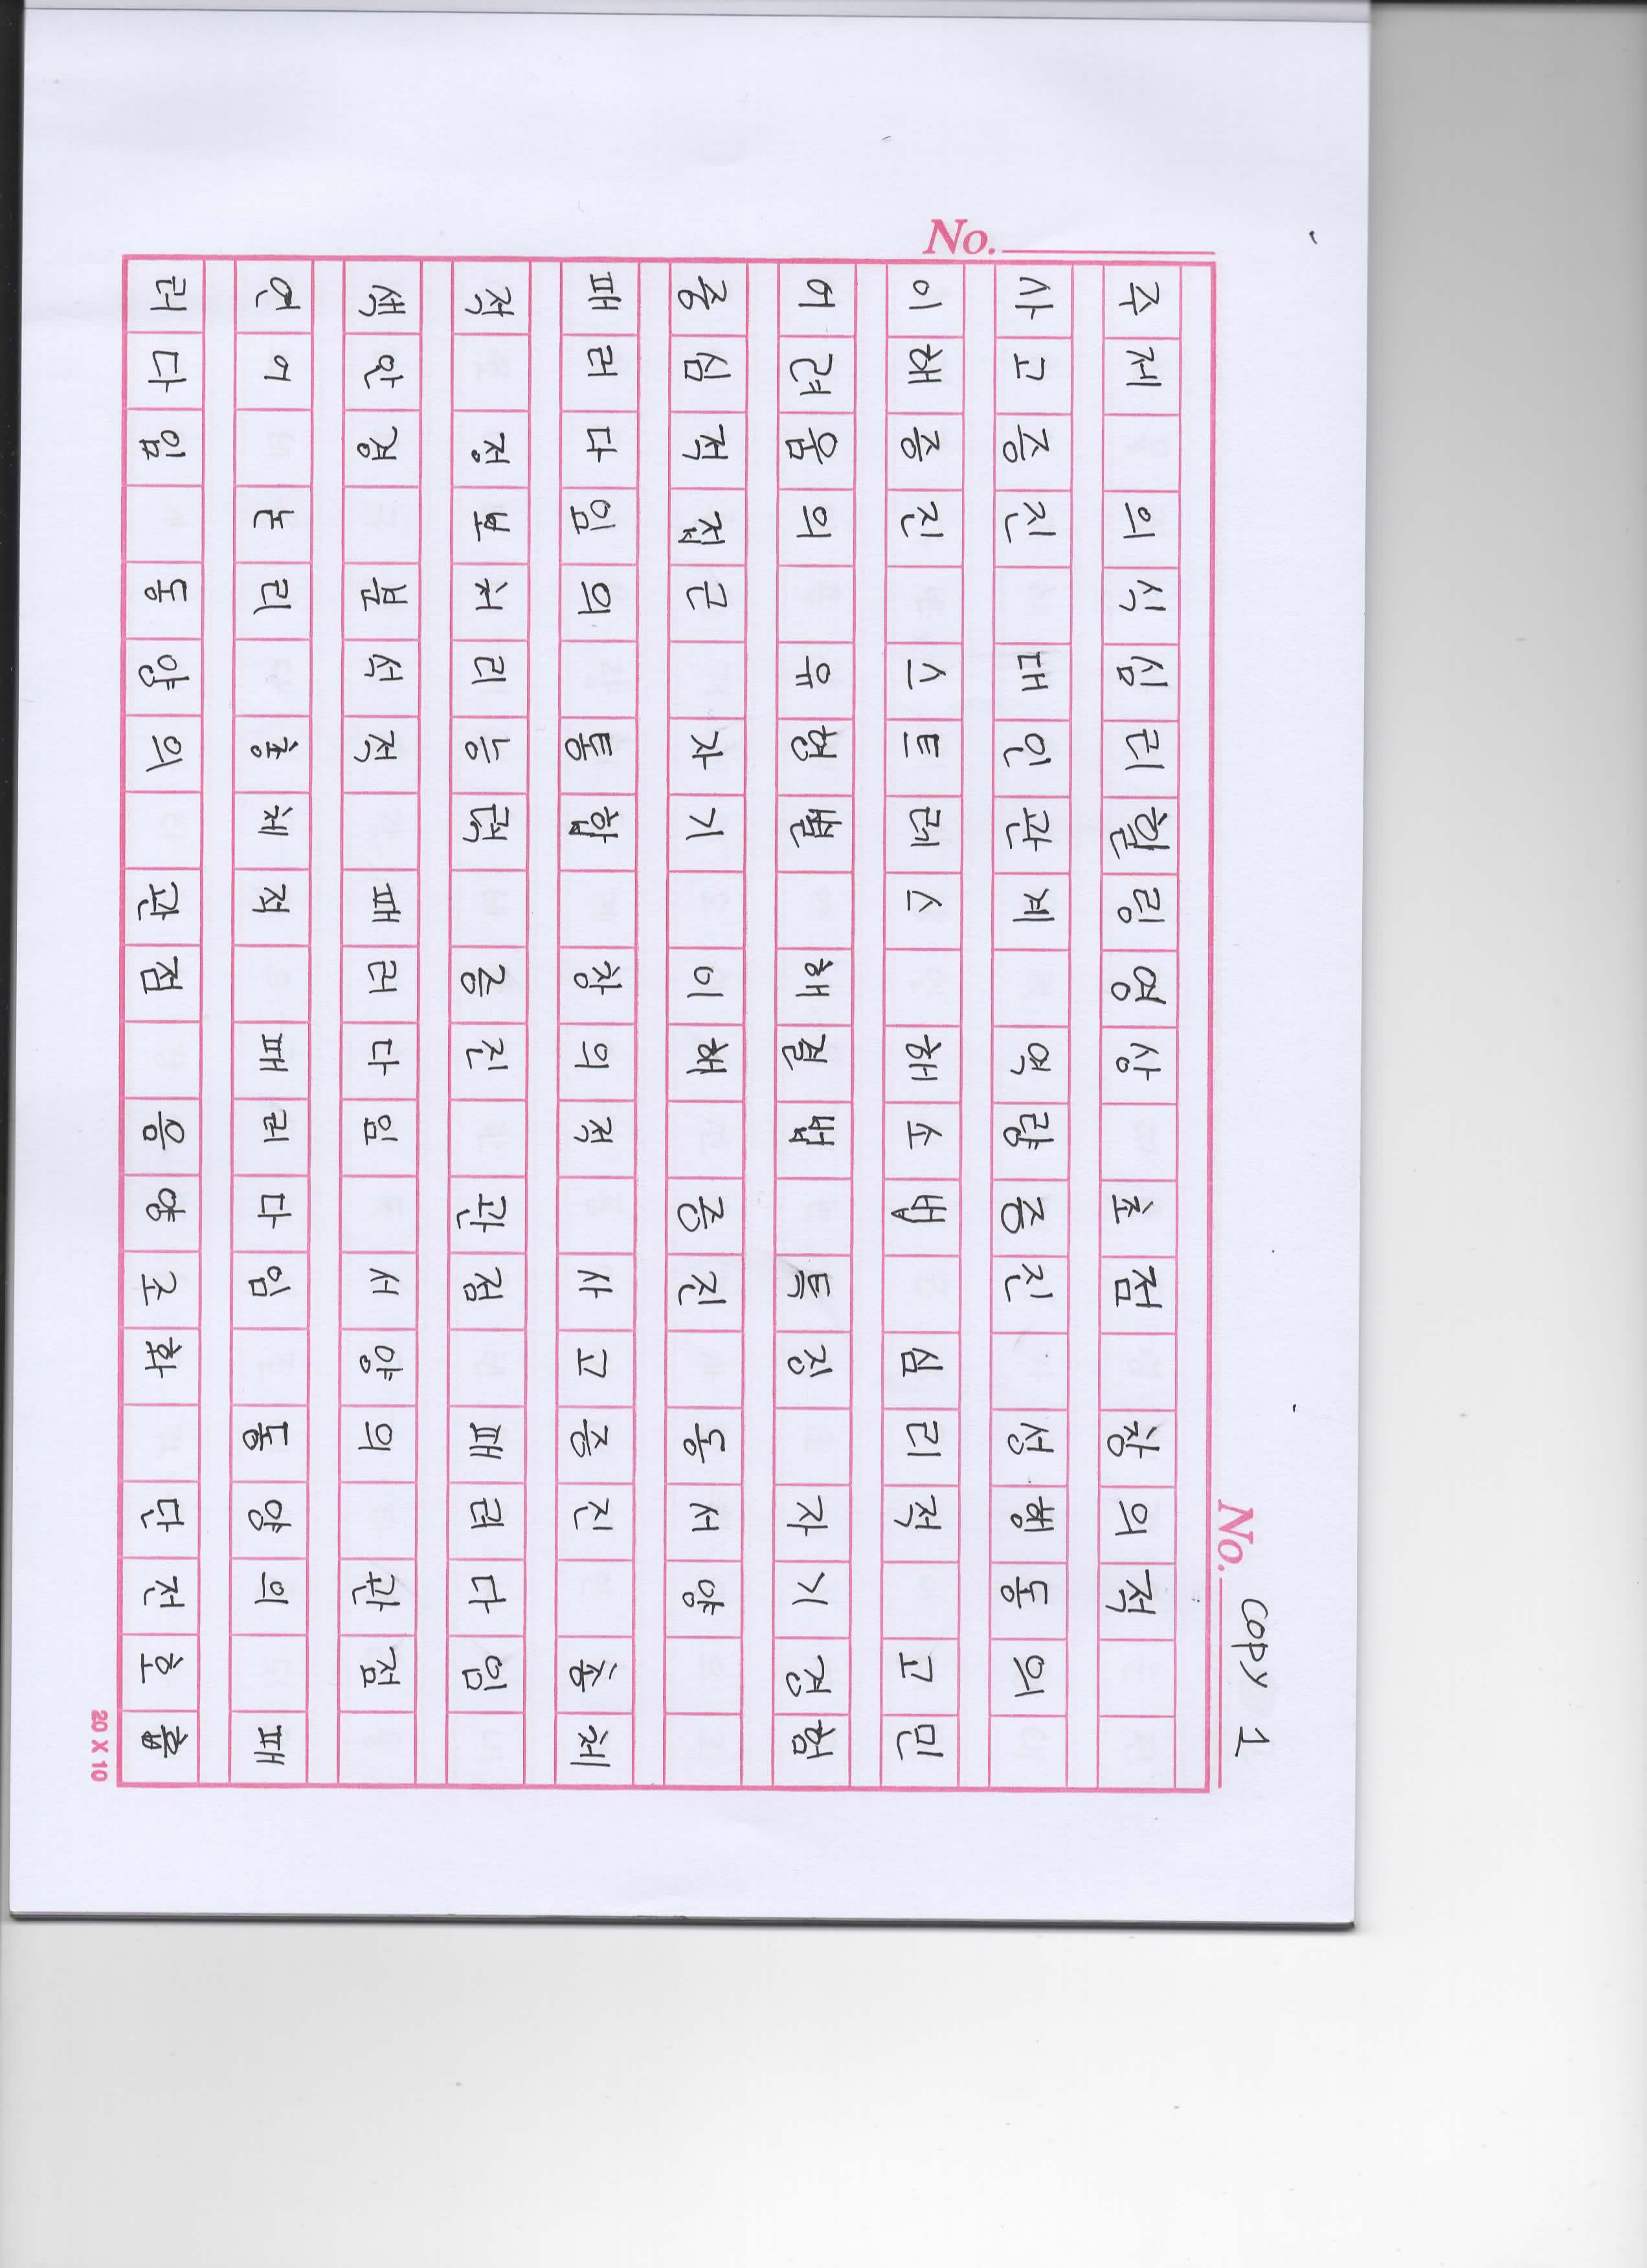 No.
No. copy 1
주제 의식심리힐링영상 초점 창의적
사고증진 대인관계 역량증진 성행동의
이해증진 스트레스 해소법 심리적 고민
어려움의 유형별 해결법 특징 자기경험
중심적접근 자기 이해 증진 동서양
패러다임의 통합 창의적 사고증진 총체
적 정보처리능력 증진 관점 패러다임
색안경 분석적 패러다임 서양의 관점
연여 논리 총체적 패러다임 동양의 패
러다임 동양의 관점 음양조화 단전호흡
20 X 10